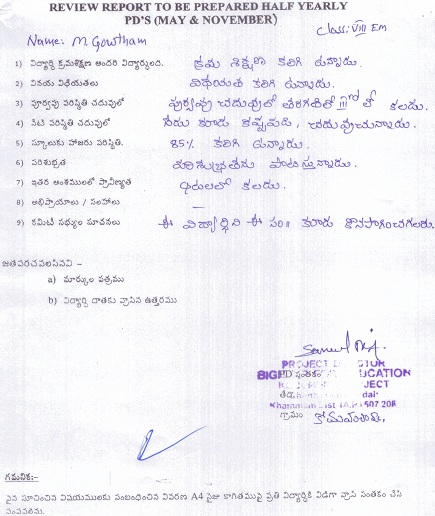 REVIEW REPORT TO BE PREPARED HALF YEARLY
PD'S (MAY & NOVEMBER)
Class: VIII EM
Name: M Gowtham
1) విద్యార్థి క్రమశిక్షణ అందరి విద్యార్థులది. క్రమ శిక్షణ కలిగి ఉన్నాడు.
2) వినయ విధేయతలు విధేయత కలిగి ఉన్నాడు.
3) పూర్వపు పరిస్థితి చదువులో పూర్వపు చదువులో తరగతిలో III తో కలడు.
4) నేటి పరిస్థితి చదువులో నేడు కూడు కష్టపడి, చదువుచున్నాడు.
5) స్కూలుకు హాజరు పరిస్థితి. 85% కలిగి ఉన్నాడు.
6) పరిశుభ్రత పరిశుభ్రతను పాటిస్తున్నాడు.
7) ఇతర అంశములలో ప్రావీణ్యత కలదు.
8) అభిప్రాయాలు / సలహాలు -
9) కమిటీ సభ్యుల సూచనలు ఈ విద్యార్థిని ఈ సం॥ కూడు కొనసాగించగలరు.
జతపరచవలసినవి :-
a) మార్కుల పత్రము
b) విద్యార్థి దాతకు వ్రాసిన ఉత్తరము
PROJECT
EDUCATION
PD సంతకం
తేది
గ్రామం
గమనిక:-
పైన సూచించిన విషయములకు సంబంధించిన వివరణ A4 సైజు కాగితముపై ప్రతి విద్యార్థికి విడిగా వ్రాసి సంతకం చేసి
పంపవలెను.